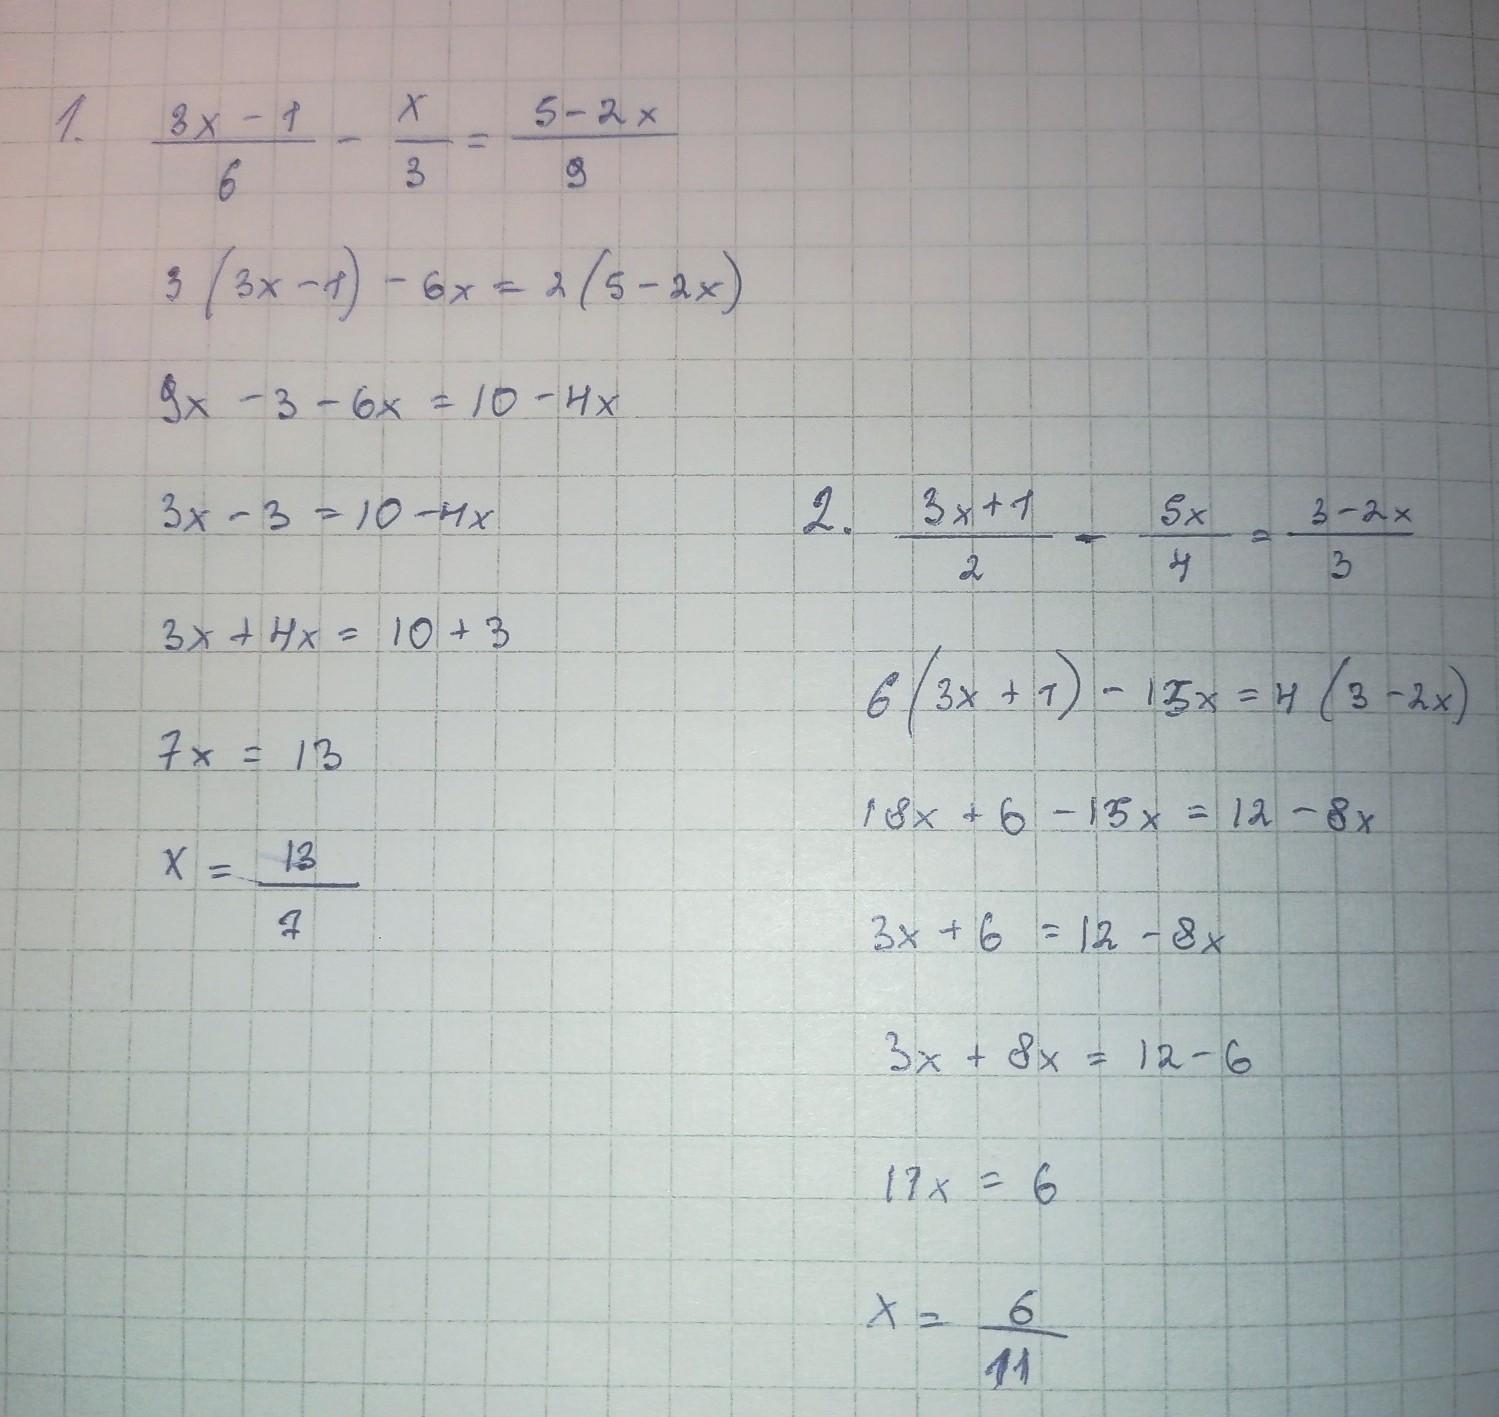 1. (3x - 1)/6 - x/3 = (5 - 2x)/9
3(3x - 1) - 6x = 2(5 - 2x)
9x - 3 - 6x = 10 - 4x
3x - 3 = 10 - 4x
3x + 4x = 10 + 3
7x = 13
x = 13/7
2. (3x + 1)/2 - 5x/4 = (3 - 2x)/3
6(3x + 1) - 15x = 4(3 - 2x)
18x + 6 - 15x = 12 - 8x
3x + 6 = 12 - 8x
3x + 8x = 12 - 6
11x = 6
x = 6/11